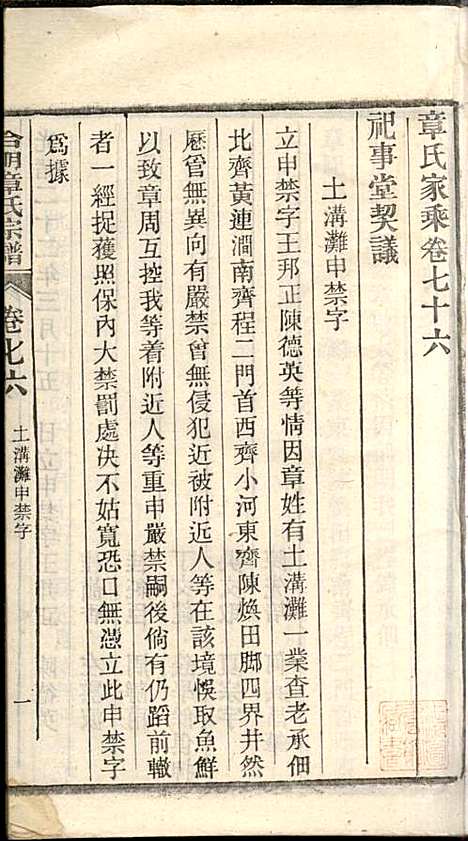 章氏家乘卷七十六
祀事堂契議
土溝灘申禁字
立申禁字王邦正陳德英等情因章姓有土溝灘一業查老承佃
北齊黃連澗南齊程二門首西齊小河東齊陳煥田脚四界井然
歷管無異向有嚴禁曾無侵犯近被附近人等在該境悞取魚鮮
以致章周互控我等着附近人等重申嚴禁嗣後倘有仍蹈前轍
者一經捉獲照保內大禁罰處决不姑寬恐口無憑立此申禁字
爲據
章氏宗譜
卷七六
土溝灘申禁字
一